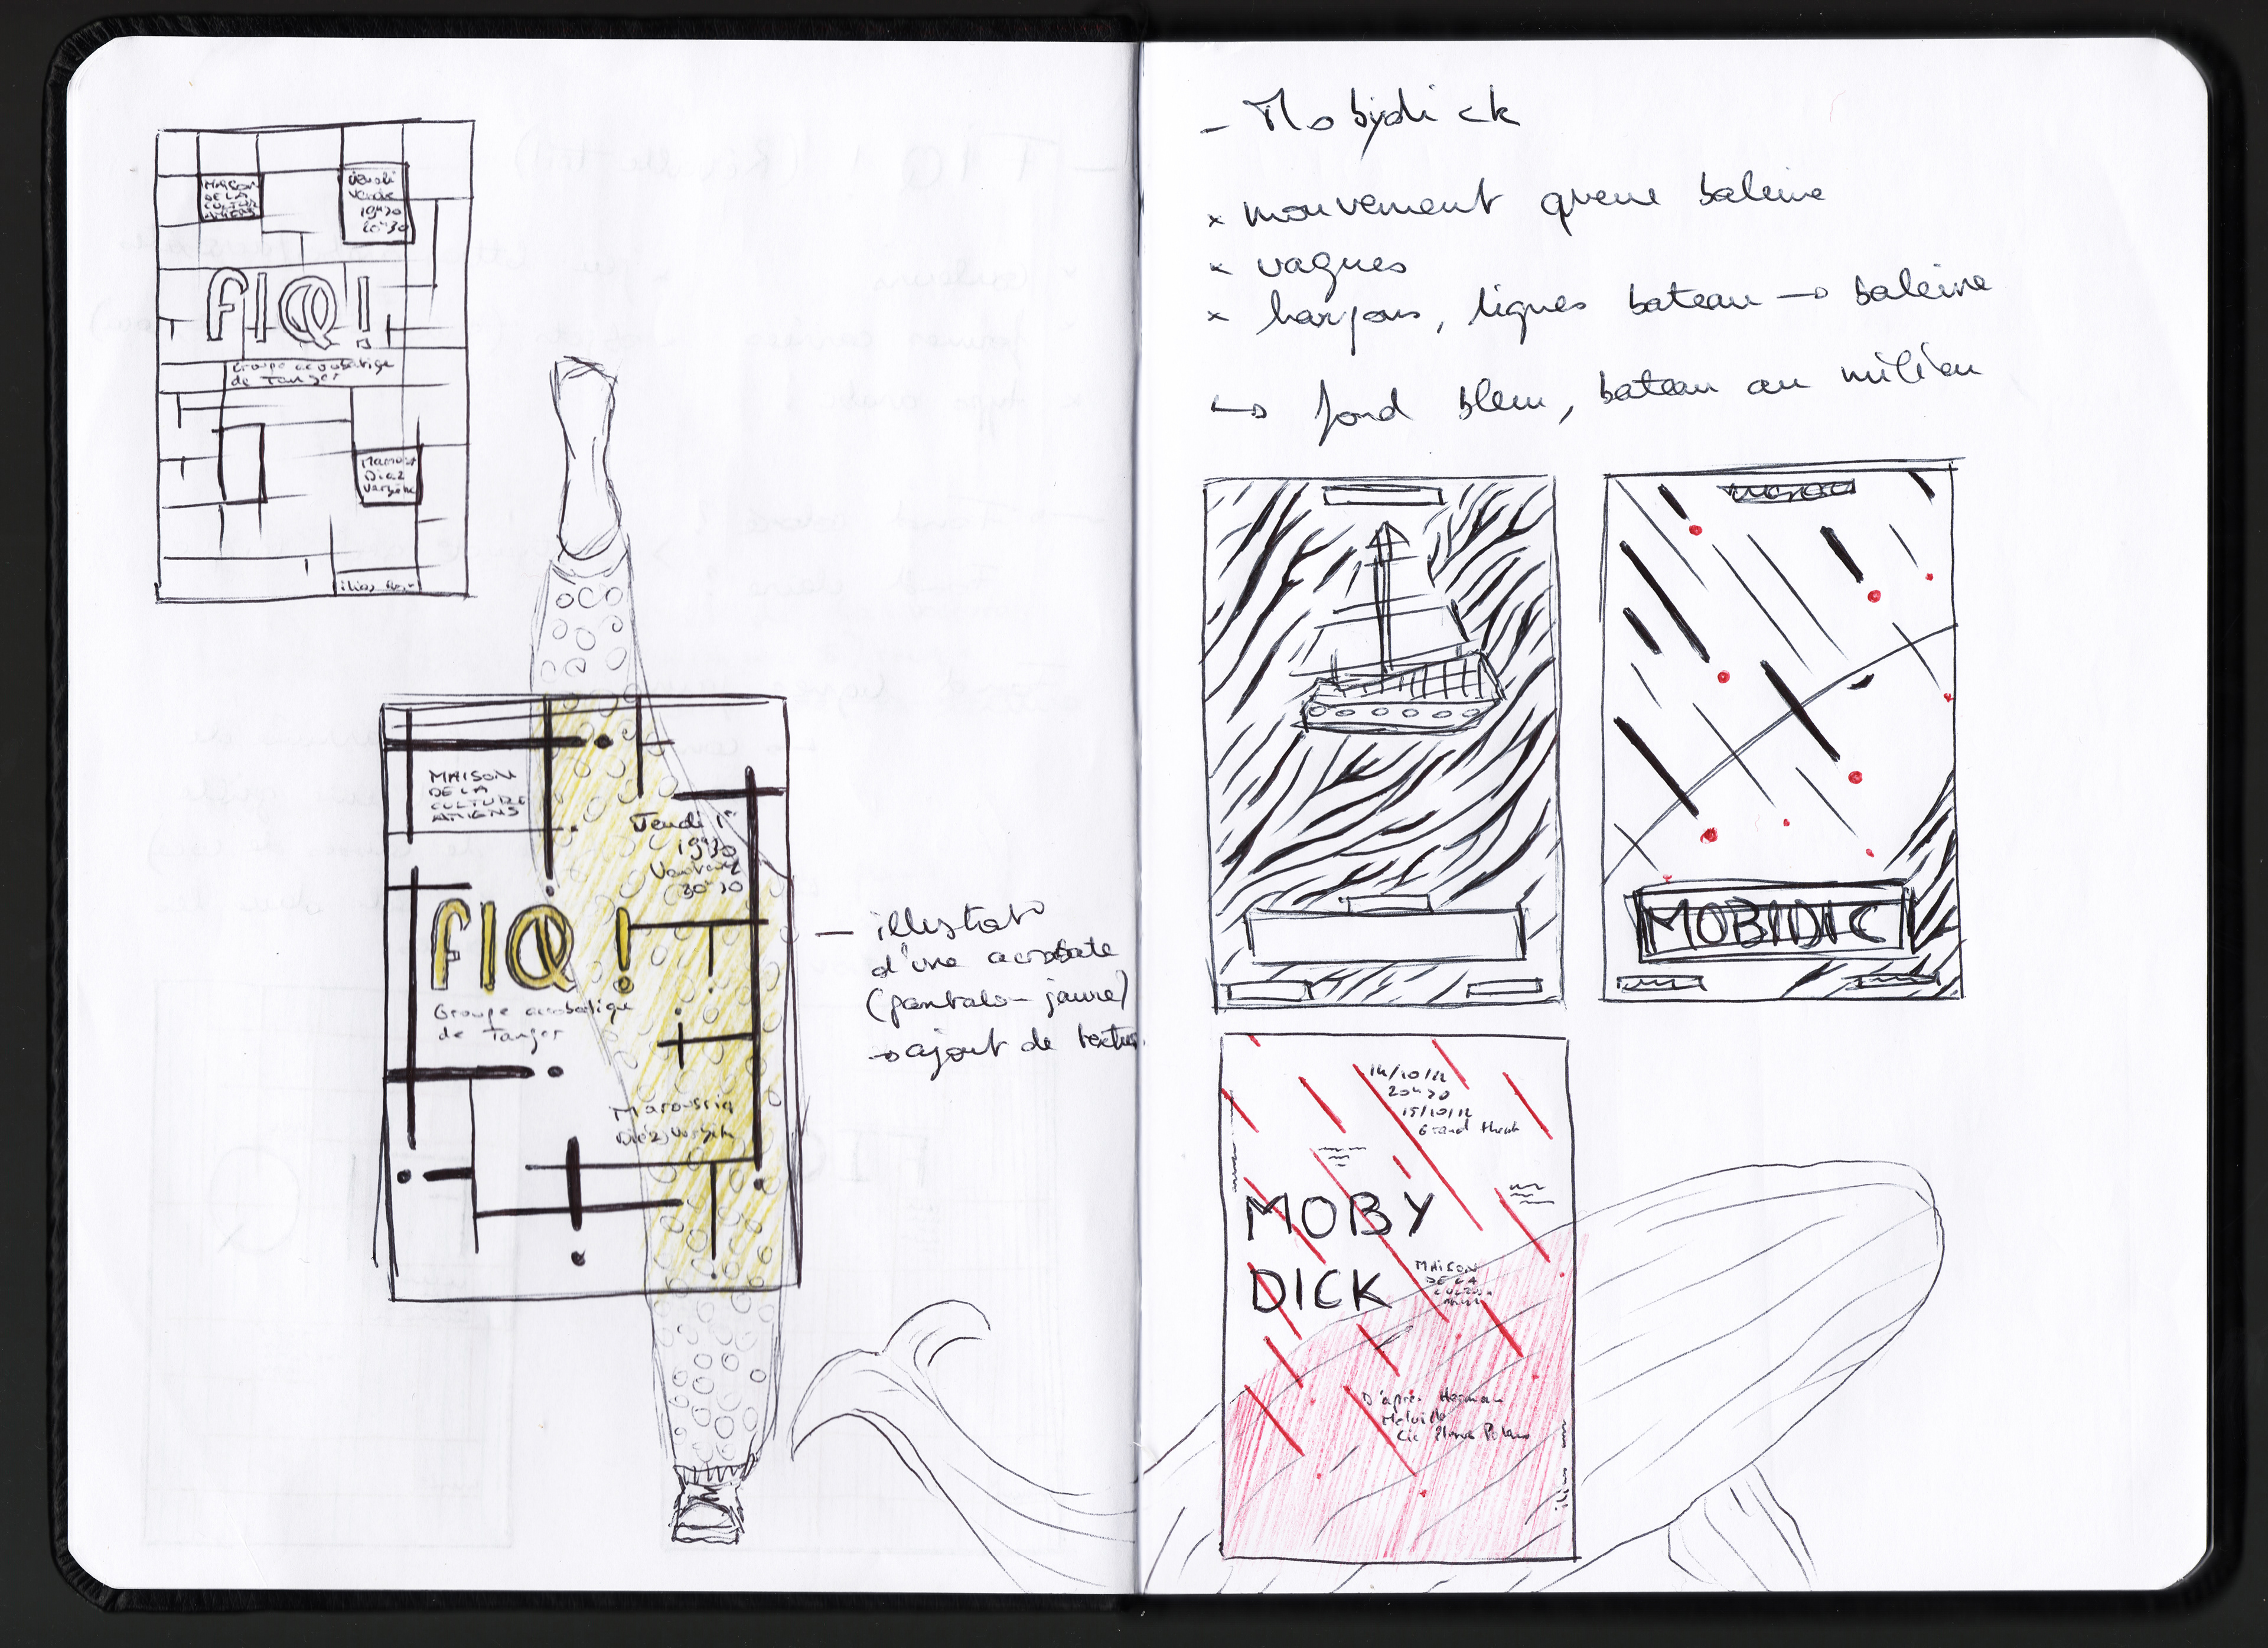 MAISON
DE LA
CULTURE
AMIENS
19h30
20h30
FIQ!
Groupe acrobatique
de Tanger
MAISON
DE LA
CULTURE
AMIENS
Jeudi 1er
19h30
Vendredi
20h30
FIQ!
Groupe acrobatique
de Tanger
– illustrat°
d'une acrobate
(pantalon jaune)
→ ajout de
– Mobydick
× mouvement queue baleine
× vagues
× harpons, lignes bateau → baleine
↳ fond bleu, bateau au milieu
MOBIDIC
14/10/12
20h30
15/10/12
Grand
MOBY
DICK
MAISON
DE LA
D'après Herman
Melville
Cie Plexus Polaire